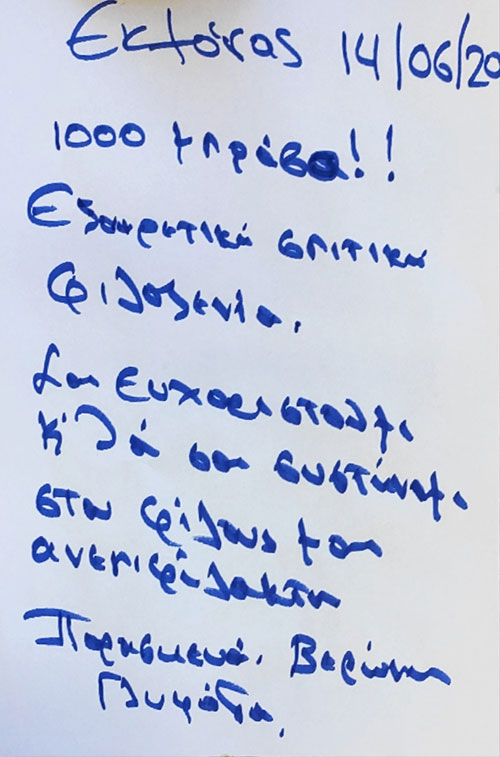 Εκτόνας 14/06/20
1000 μπράβο!!
Εξαιρετική σπιτική
φιλοξενία.
Σας ευχαριστούμε
κ' θα σας συστήνουμε
στους φίλους μας
ανεπιφύλακτα
Παρασκευά. Βερώνης
Γλυφάδα.